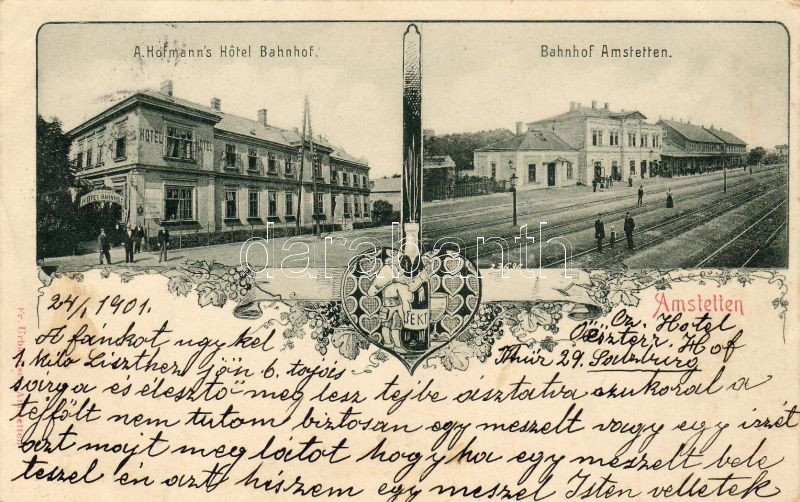 A. Hofmann's Hôtel Bahnhof.
Bahnhof Amstetten.
HOTEL
HOTEL BAHNHOF
darabanth
SEKT
Amstetten
24/1 1901.
Cz. Hotel
Österr. Hof
Thür 29. Salzburg
A fánkot ugy kel
1 kiló Liszthez jön 6. tojás
sárga és élesztő meg lesz tejbe ásztatva czukoral a
tejfölt nem tutom biztosan egy meszelt vagy egy iszét
azt majt meg látot hogy ha egy meszelt bele
teszel én azt hiszem egy meszel Isten velletek